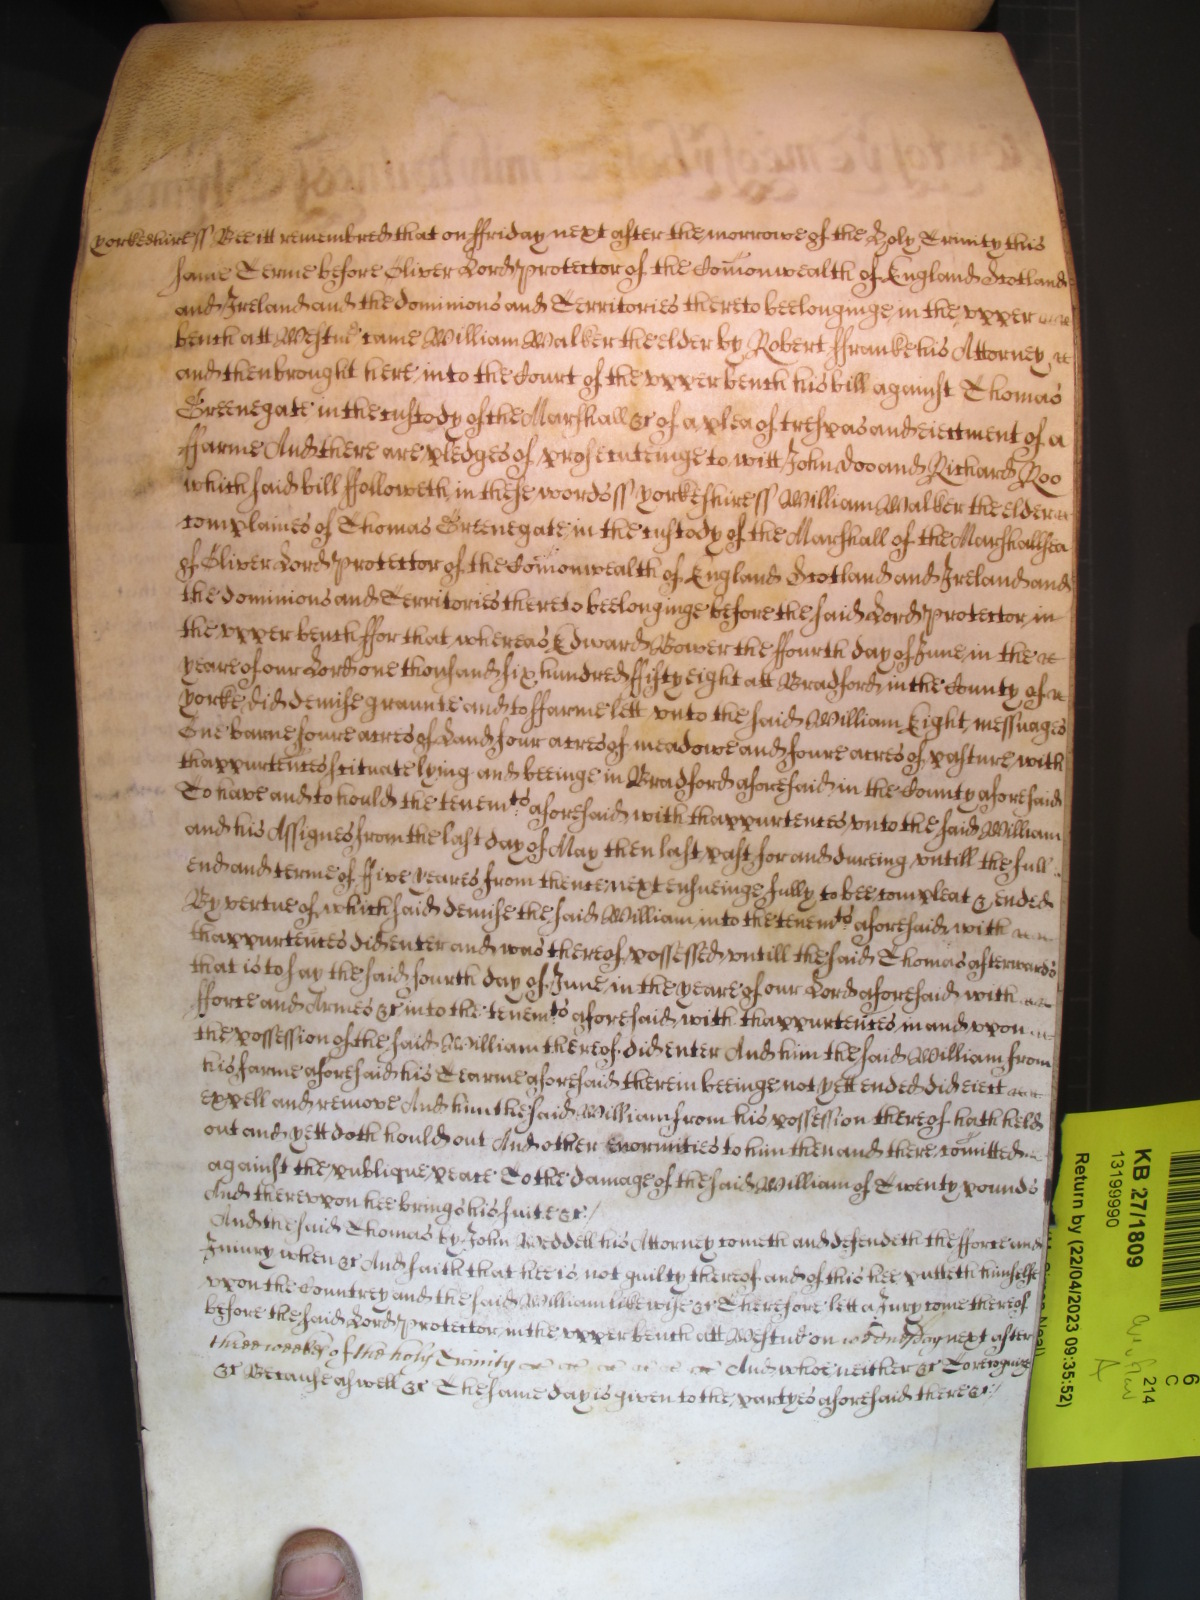 Yorkeshire ss Bee itt remembred that on ffriday next after the morrowe of the Holy Trinity this
same Terme before Oliver Lord Protector of the Com̄onwealth of England Scotland
and Ireland and the dominions and Territories thereto beelonginge in the upper
bench att Westm̄ came William Walker the elder by Robert ffranke his Attorney
and then brought here into the Court of the upper bench his bill against Thomas
Greenegate in the custody of the Marshall &c of a plea of trespas and eiectment of a
ffarme And there are pledges of prosecuteinge to witt John Doo and Richard Roo
which said bill ffolloweth in these words ss Yorkeshire ss William Walker the elder
complaines of Thomas Greenegate in the custody of the Marshall of the Marshallsea
of Oliver Lord Protector of the Com̄onwealth of England Scotland and Ireland and
the dominions and Territories thereto beelonginge before the said Lord Protector in
the upper bench ffor that whereas Edward Bower the ffourth day of June in the
yeare of our Lord one thousand six hundred ffifty eight att Bradford in the County of
yorke did demise graunte and to ffarme lett unto the said William Eight messuages
One barne foure acres of Land four acres of meadowe and foure acres of pasture with
thappurten̄ces scituate lying and beeinge in Bradford aforesaid in the County aforesaid
To have and to hould the tenemts aforesaid with thappurtences unto the said William
and his Assignes from the last day of May then last past for and dureing untill the full
end and terme of ffive yeares from thence next ensueinge fully to bee compleat & ended
By vertue of which said demise the said William into the tenemts aforesaid with
thappurtences did enter and was thereof possessed untill the said Thomas afterwards
that is to say the said fourth day of June in the yeare of our Lord aforesaid with
fforce and Armes &c into the tenemts aforesaid with thappurten̄ces in and upon
the possession of the said William thereof did enter And him the said William from
his farme aforesaid his Tearme aforesaid therein beeinge not yett ended did eiect
expell and remove And him the said William from his possession thereof hath held
out and yett doth hould out And other enormities to him then and there com̄itted
against the publique peace To the damage of the said William of Twenty pounds
And thereupon hee brings his suite &c /
And the said Thomas by John Weddell his Attorney cometh and defendeth the fforce and
Iniury when &c And saith that hee is not guilty thereof and of this hee putteth himselfe
upon the Countrey and the said William likewise &c Therefore lett a Jury come thereof
before the said Lord Protector in the upper bench att Westm̄ on wednesday next after
three weekes of the holy Trinity And whoe neither &c To recognize
&c Because aswell &c The same day is given to the partyes aforesaid there &c /
KB 27/1809
13199990
Return by (22/04/2023 09:35:52)
6
C
214
A